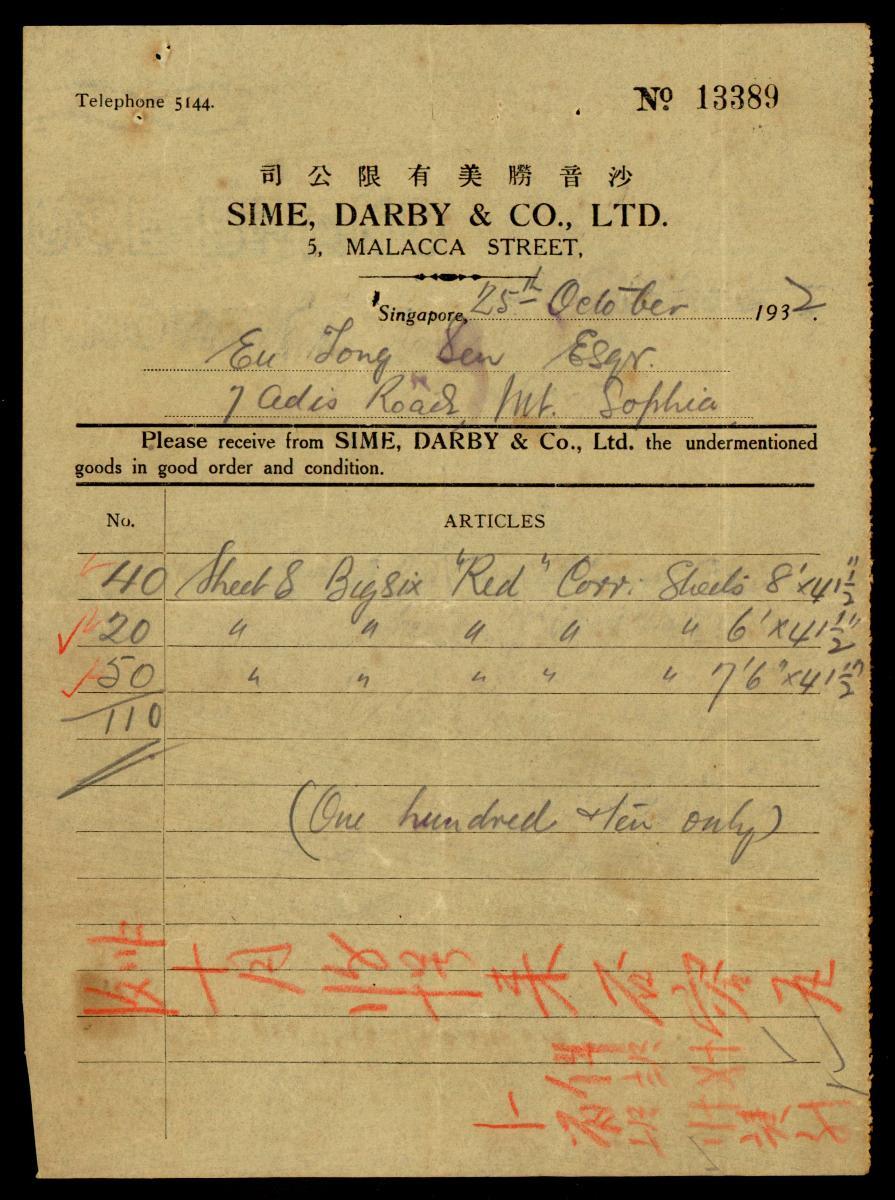 Telephone 5144.
Nº 13389
司公限有美勝音沙
SIME, DARBY & CO., LTD.
5, MALACCA STREET,
Singapore, 25th October 1932.
Eu Tong Sen Esqr.
7 Adis Road, Mt. Sophia
Please receive from SIME, DARBY & Co., Ltd. the undermentioned
goods in good order and condition.
No. ARTICLES
40 Sheets Bigsix "Red" Corr: Sheets 8' x 41½"
20 " " " " " 6' x 41½"
50 " " " " " 7'6" x 41½"
110
(One hundred & ten only)